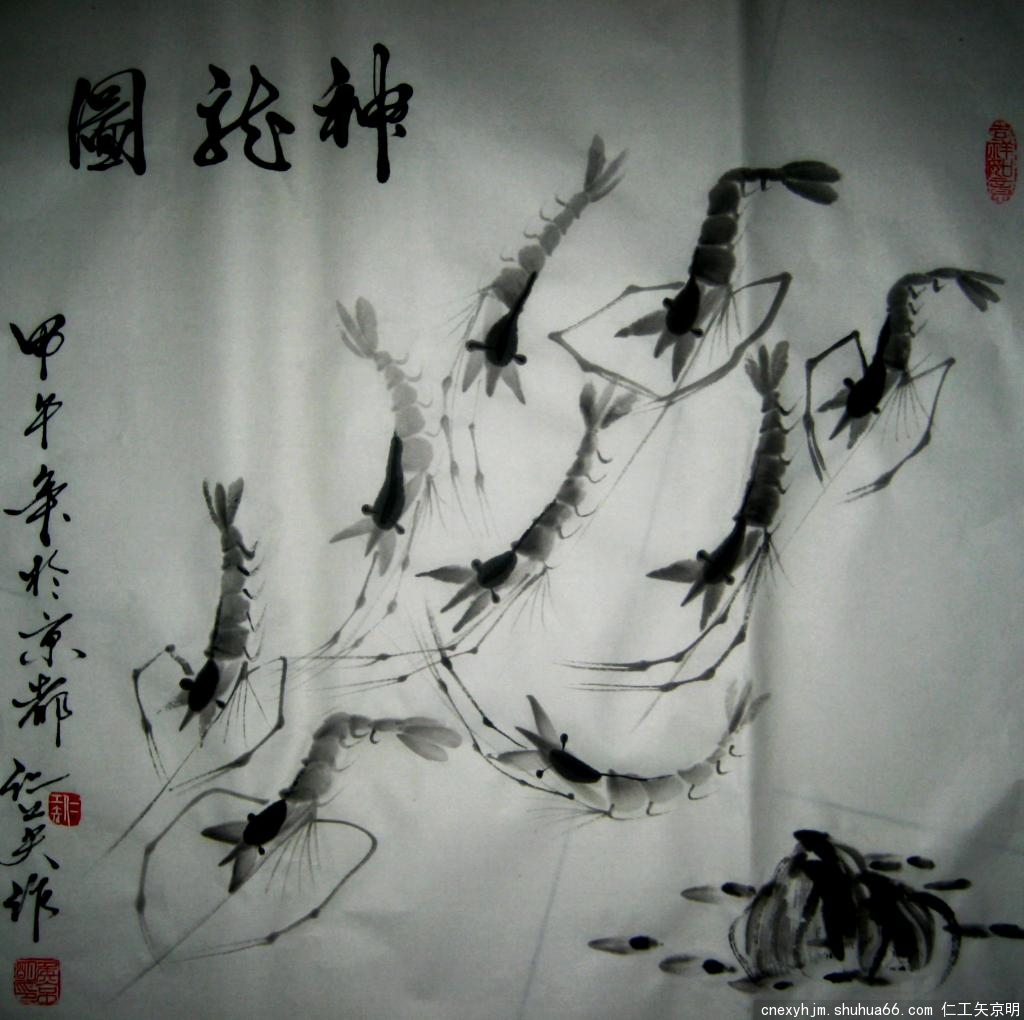 神龙圖
甲午年於京都
仁工矢作
吉祥如意
cnexyhjm.shuhua66.com 仁工矢京明